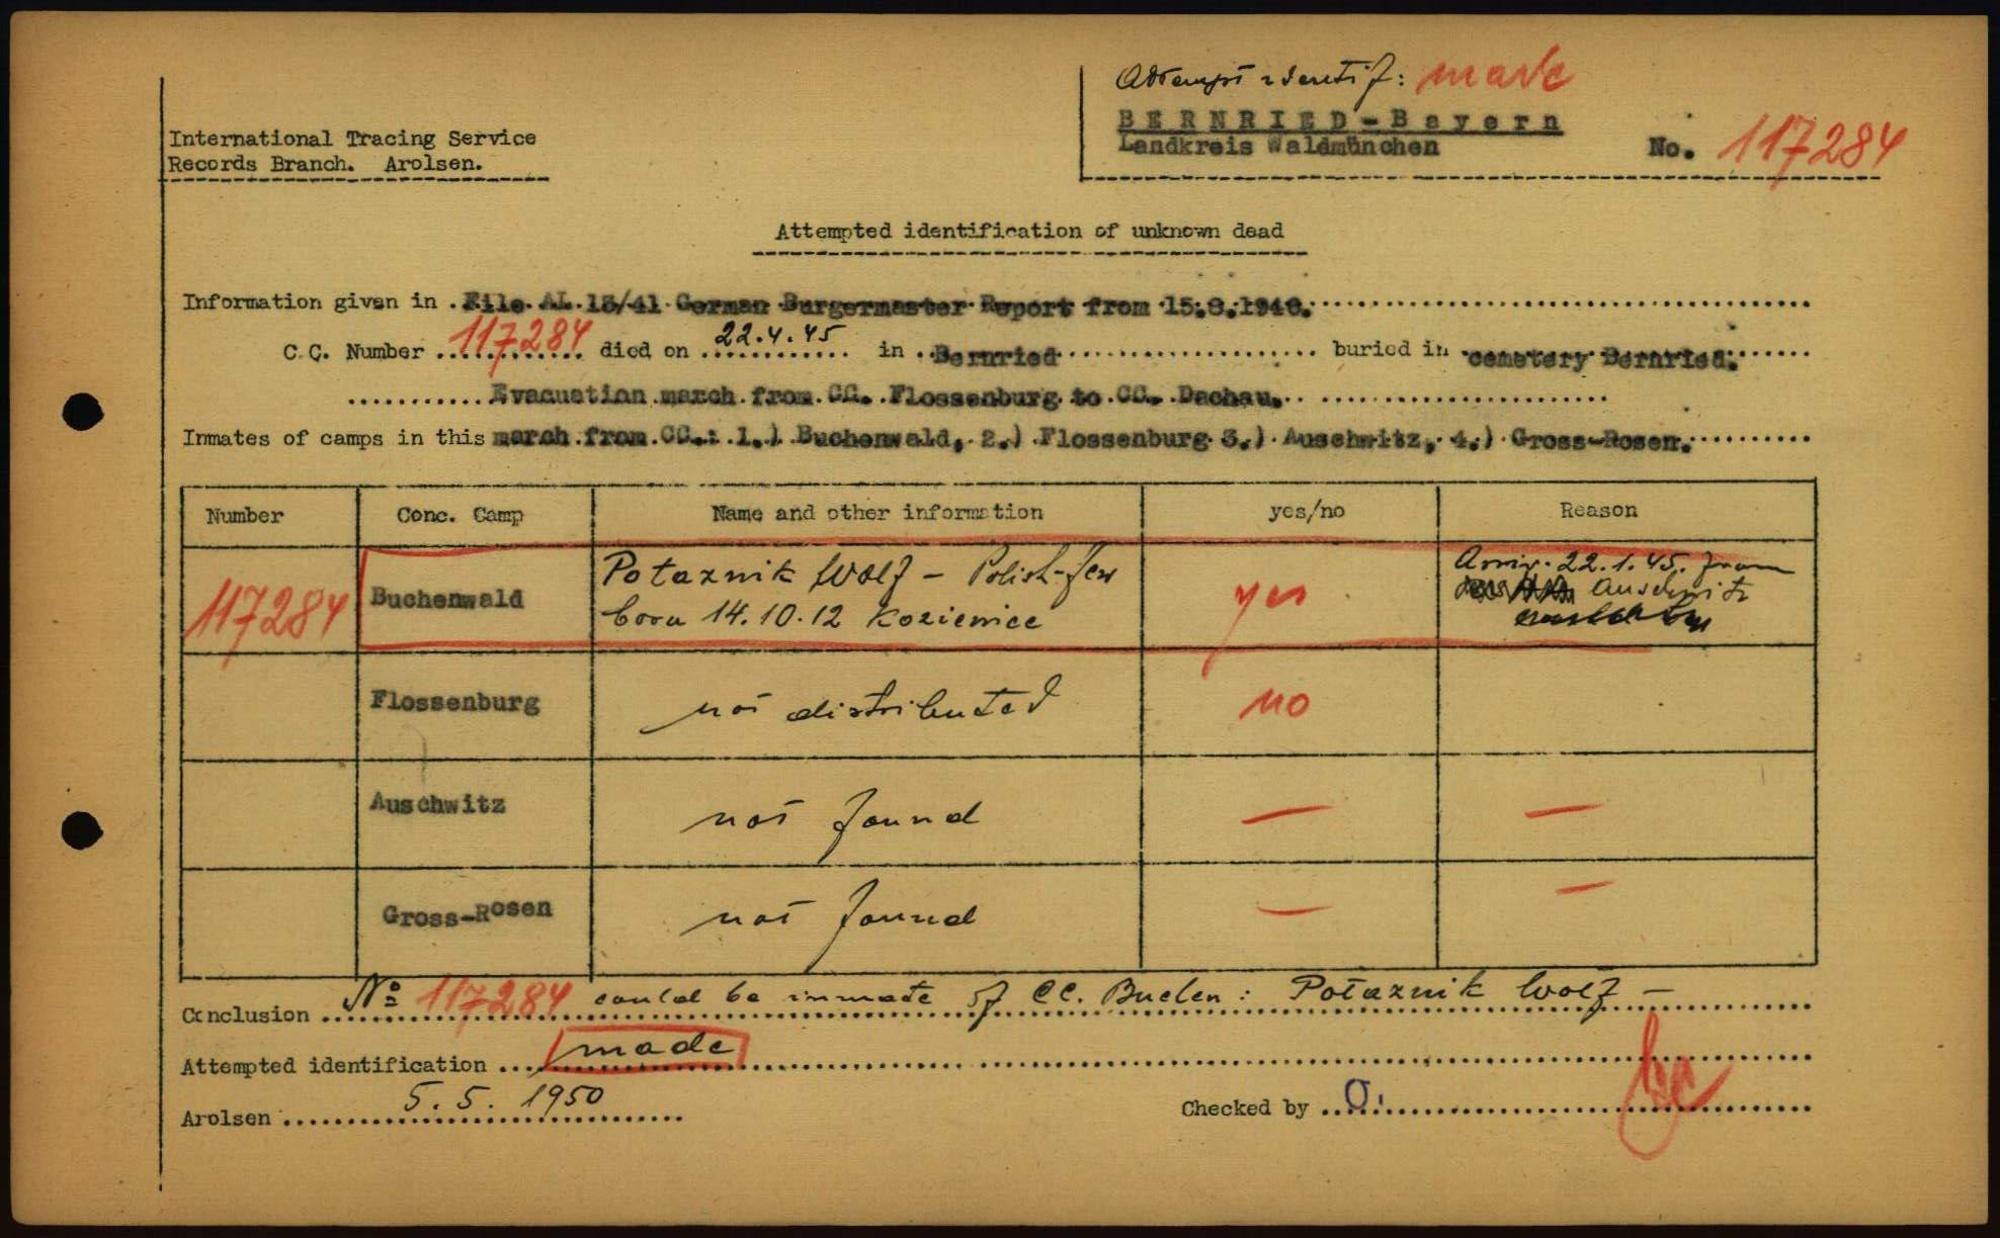 Attempt identif: made
BERNRIED-Bayern
Landkreis Waldmünchen
No. 117284
International Tracing Service
Records Branch. Arolsen.
Attempted identification of unknown dead
Information given in File AL 13/41 German Burgermaster Report from 15.8.1946.
C.C. Number 117284 died on 22.4.45 in Bernried buried in cemetery Bernried.
Evacuation march from CC. Flossenburg to CC. Dachau.
Inmates of camps in this march from CC.: 1.) Buchenwald, 2.) Flossenburg 3.) Auschwitz, 4.) Gross-Rosen.
Number Conc. Camp Name and other information yes/no Reason
117284 Buchenwald Potaznik Wolf - Polish-Jew born 14.10.12 Kozienice yes Arriv. 22.1.45. from Auschwitz
Flossenburg not distributed no
Auschwitz not found — —
Gross-Rosen not found — —
Conclusion No 117284 could be inmate of CC. Buchen: Potaznik Wolf -
Attempted identification made
Arolsen 5.5.1950
Checked by O.